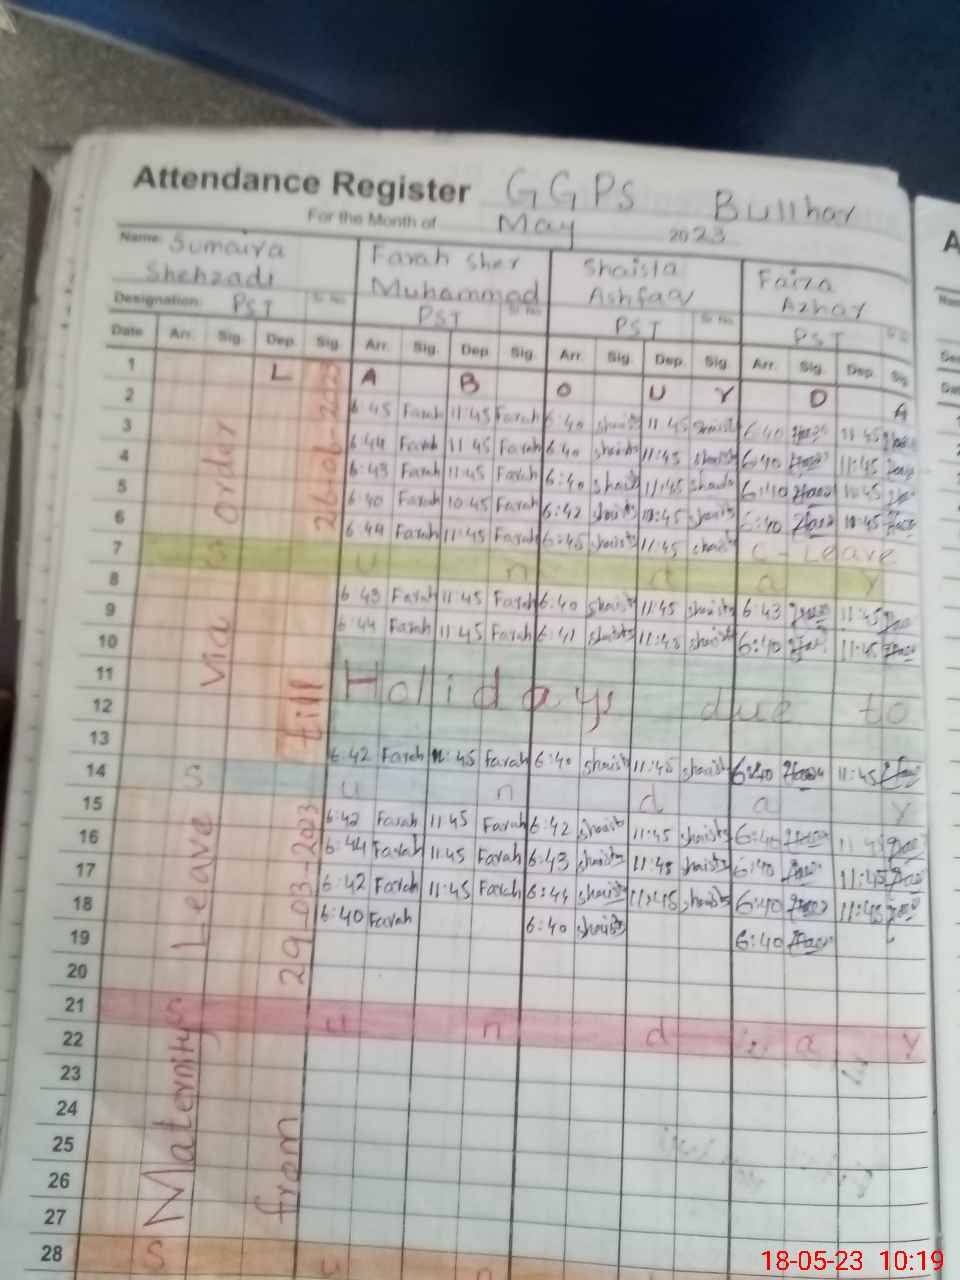 Attendance Register GGPS Bullhar
For the Month of May 2023
Name: Sumaira Shehzadi Farah Sher Muhammad Shaista Ashfaq Faiza Azhar
Designation: PST Sr. No. PST Sr. No. PST Sr. No. PST
Date Arr. Sig. Dep. Sig. Arr. Sig. Dep. Sig. Arr. Sig. Dep. Sig. Arr. Sig. Dep. Sig
1 L A B O U R D A
2 6:45 Farah 11:45 Farah 6:40 shaista 11:45 shaista 6:40 11:45
3 6:44 Farah 11:45 Farah 6:40 shaista 11:45 shaista 6:40 11:45
4 6:43 Farah 11:45 Farah 6:40 shaista 11:45 shaista 6:40 11:45
5 6:40 Farah 10:45 Farah 6:42 shaista 10:45 shaista 6:40 10:45
6 6:44 Farah 11:45 Farah 6:45 shaista 11:45 shaista C-Leave
7 S u n d a y
8 6:43 Farah 11:45 Farah 6:40 shaista 11:45 shaista 6:43 11:45
9 6:44 Farah 11:45 Farah 6:41 shaista shaista 6:40 11:45
10
11 Holidays due to
12
13 6:42 Farah 11:45 Farah 6:40 shaista shaista 6:40 11:45
14 S u n d a y
15 6:42 Farah 11:45 Farah 6:42 shaista 11:45 shaista 6:40 11:45
16 6:44 Farah 11:45 Farah 6:43 shaista 11:45 shaista 6:40 11:45
17 6:42 Farah 11:45 Farah 6:44 shaista 11:45 shaista 6:40 11:45
18 6:40 Farah 6:40 shaista 6:40
19
20
21 S u n d a y
22
23
24
25
26
27
28 S u n
Maternity Leave Via order
from 29-03-2023 till 26-06-2023
18-05-23 10:19